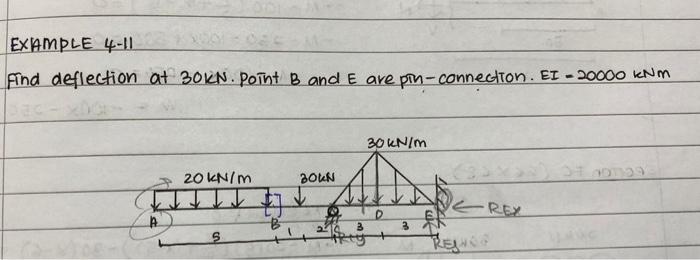 EXAMPLE 4-11
Find deflection at 30KN. Point B and E are pin-connection. EI = 20000 kNm
30 kN/m
20 kN/m
30kN
REX
A
B
D
E
5
1
2
3
3